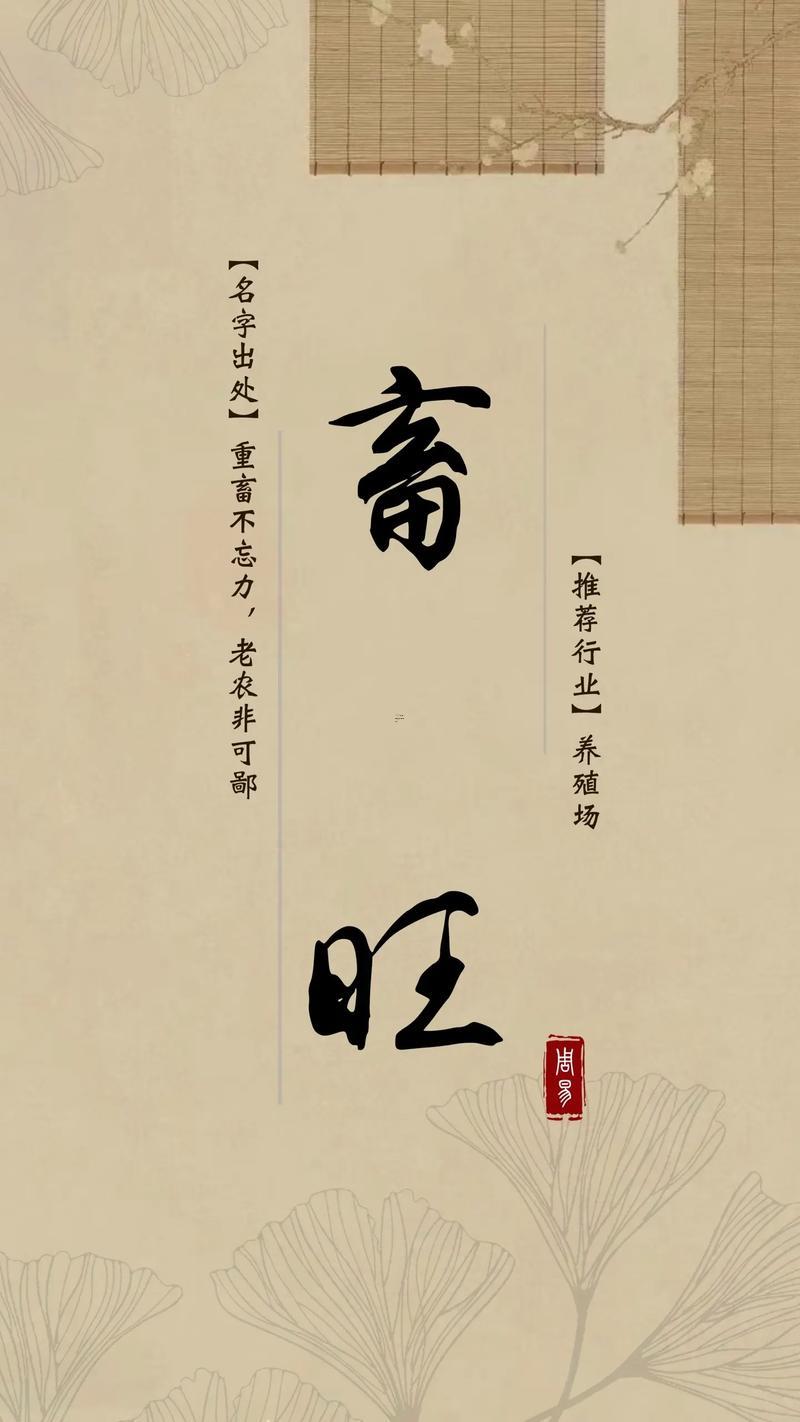 【推荐行业】养殖场
畜旺
周易
【名字出处】重畜不忘力，老农非可鄙